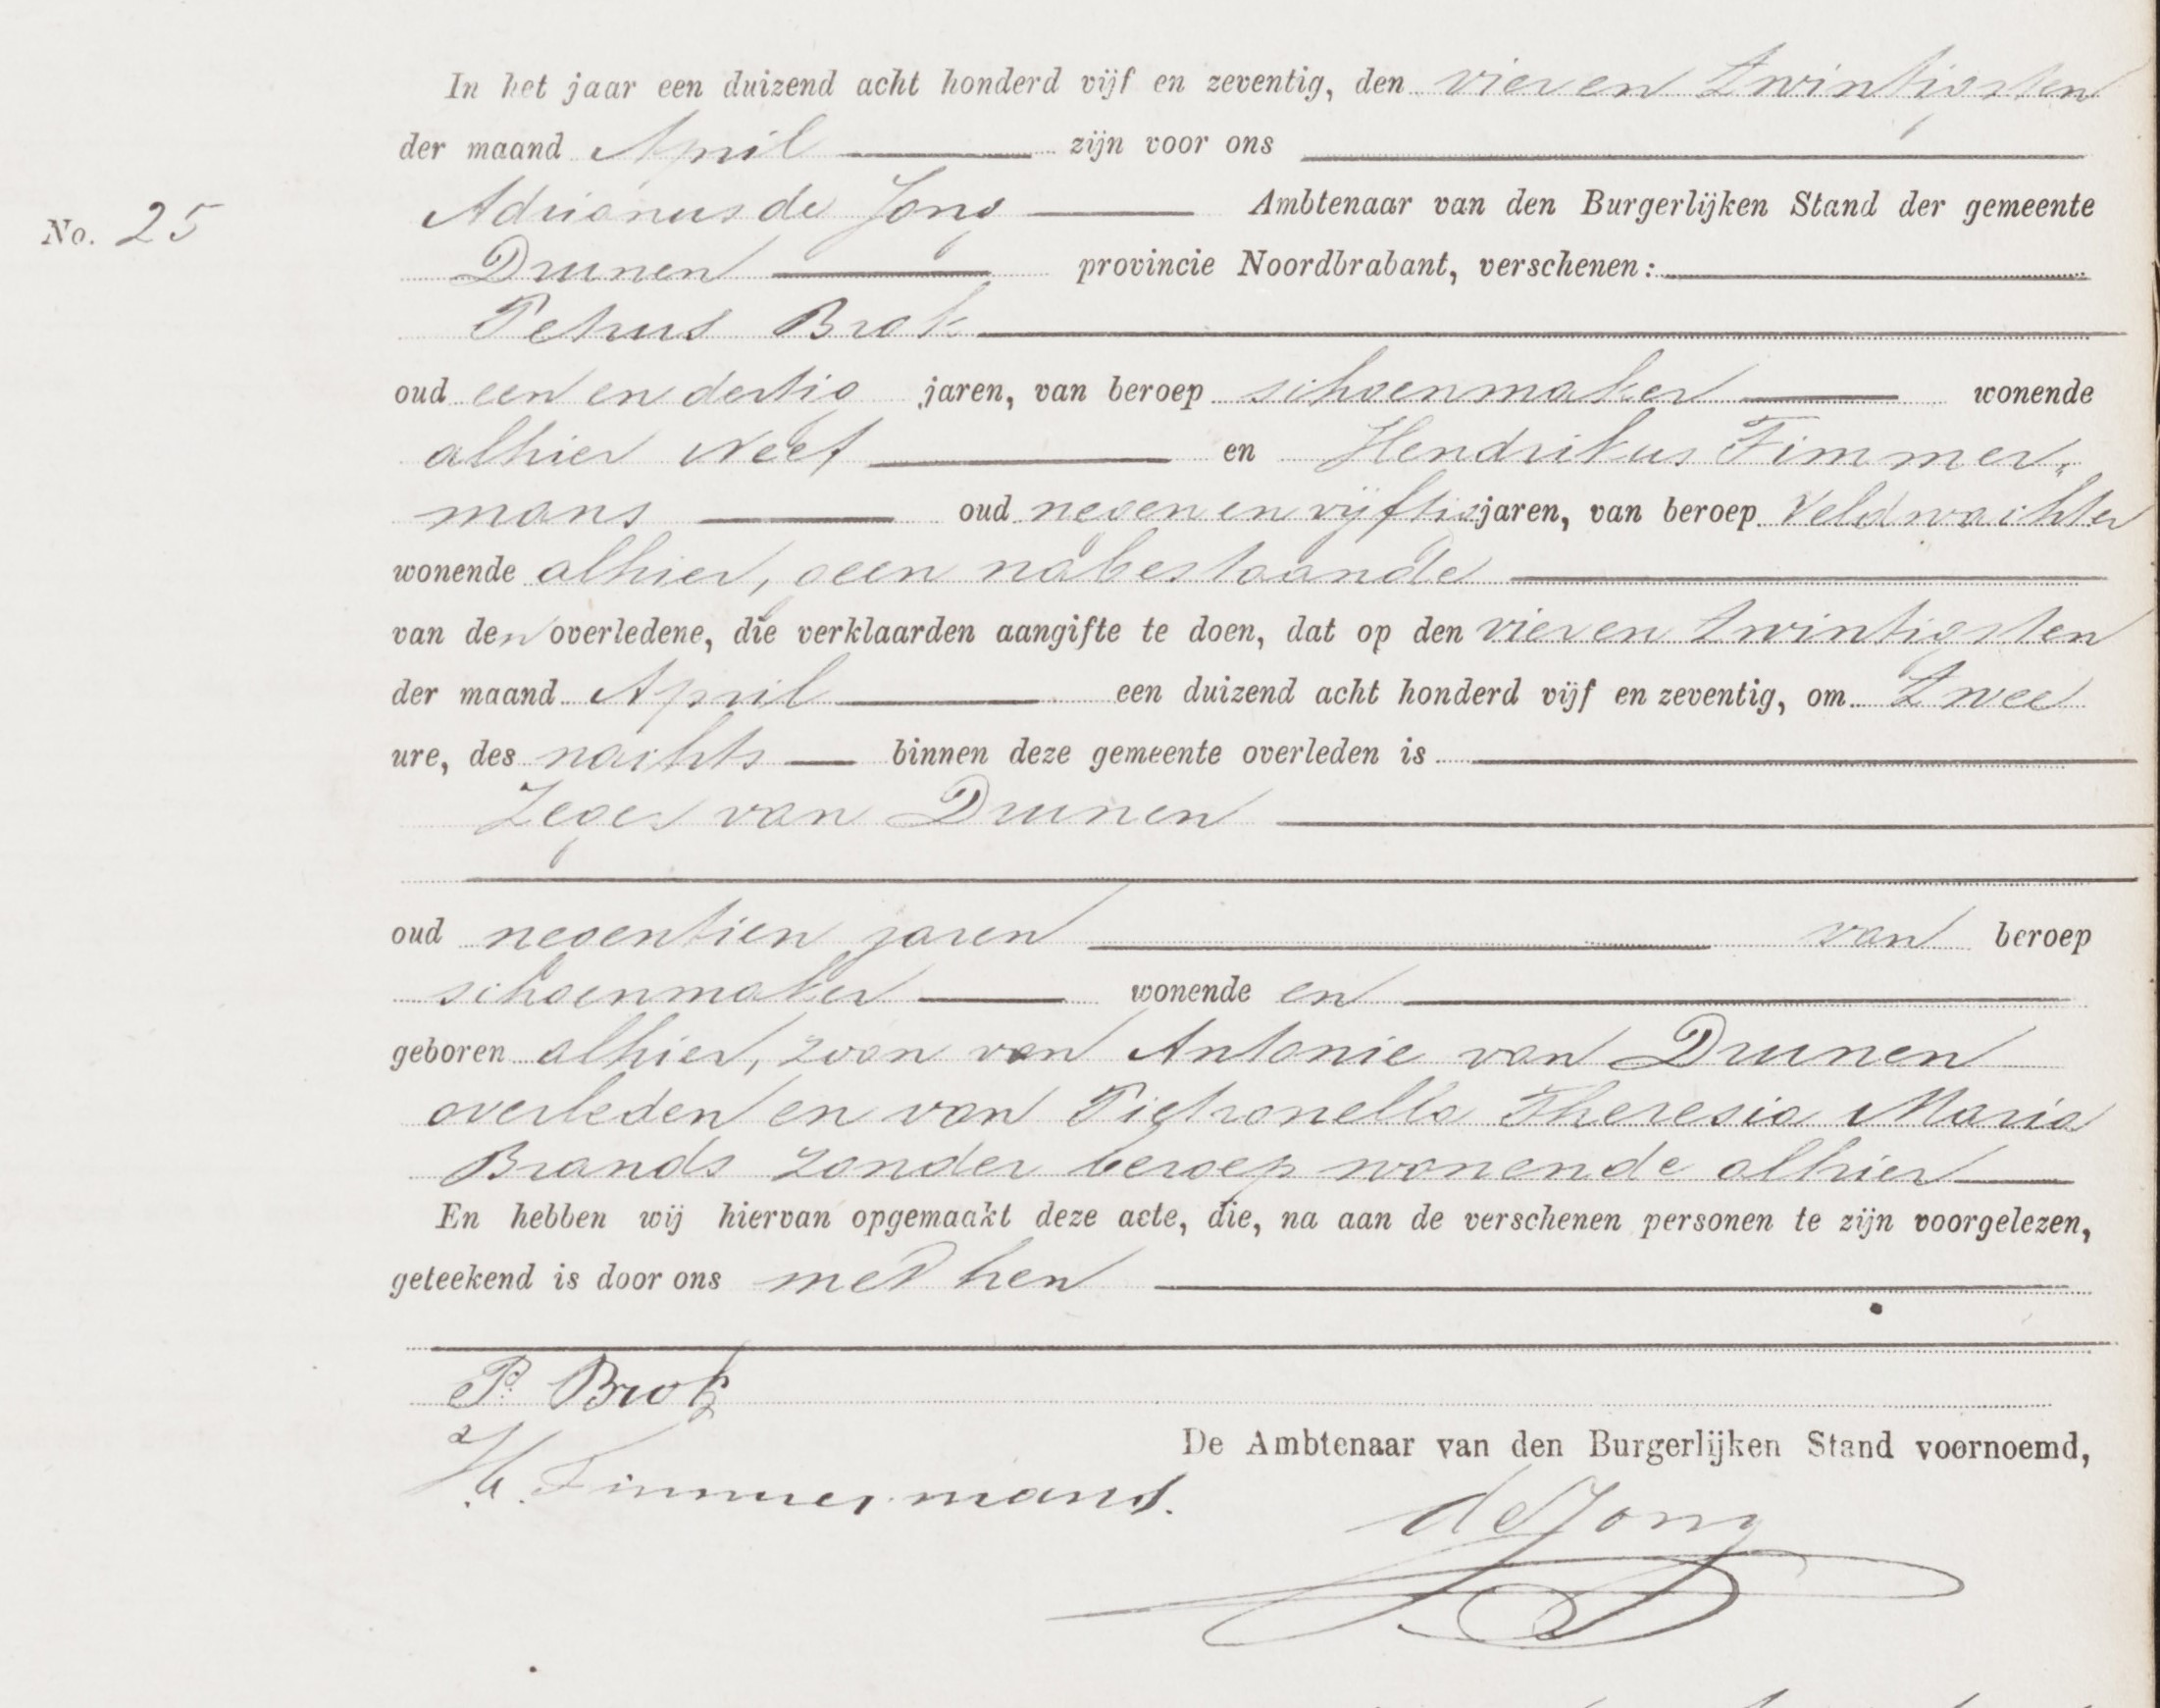 In het jaar een duizend acht honderd vijf en zeventig, den vier en twintigsten
der maand April zijn voor ons
No. 25
Adrianus de Jong Ambtenaar van den Burgerlijken Stand der gemeente
Drunen provincie Noordbrabant, verschenen:
Petrus Brok
oud een en dertig jaren, van beroep schoenmaker wonende
alhier Neef en Hendrikus Timmer„
mans oud negen en vijftig jaren, van beroep Veldwachter
wonende alhier, geen nabestaande
van den overledene, die verklaarden aangifte te doen, dat op den vier en twintigsten
der maand April een duizend acht honderd vijf en zeventig, om twee
ure, des nachts binnen deze gemeente overleden is
Zeger van Drunen
oud negentien jaren van beroep
schoenmaker wonende en
geboren alhier, zoon van Antonie van Drunen
overleden en van Pietronella Theresia Maria
Brands zonder beroep wonende alhier
En hebben wij hiervan opgemaakt deze acte, die, na aan de verschenen personen te zijn voorgelezen,
geteekend is door ons met hen
P. Brok
De Ambtenaar van den Burgerlijken Stand voornoemd,
H. Timmermans.
de Jong